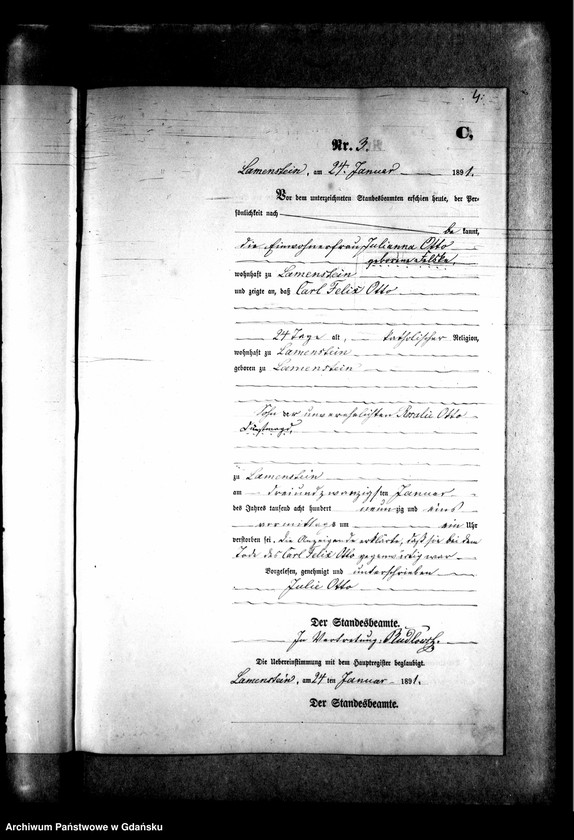 4.
C,
Nr. 3.
Lamenstein, am 24. Januar 1891.
Vor dem unterzeichneten Standesbeamten erschien heute, der Per-
sönlichkeit nach
be kannt,
die Einwohnerfrau Julianna Otto
geborene
wohnhaft zu Lamenstein
und zeigte an, daß Carl Felix Otto
24 Tage alt, katholischer Religion,
wohnhaft zu Lamenstein
geboren zu Lamenstein
Sohn der unverehelichten Rosalie Otto
Dienstmagd,
zu Lamenstein
am dreiundzwanzigsten Januar
des Jahres tausend acht hundert neunzig und eins
vormittags um ein Uhr
verstorben sei. Die Anzeigende erklärte, daß sie bei dem
Tode des Carl Felix Otto gegenwärtig war
Vorgelesen, genehmigt und unterschrieben
Julie Otto
Der Standesbeamte.
In Vertretung:
Die Uebereinstimmung mit dem Hauptregister beglaubigt.
Lamenstein, am 24 ten Januar 1891.
Der Standesbeamte.
Archiwum Państwowe w Gdańsku